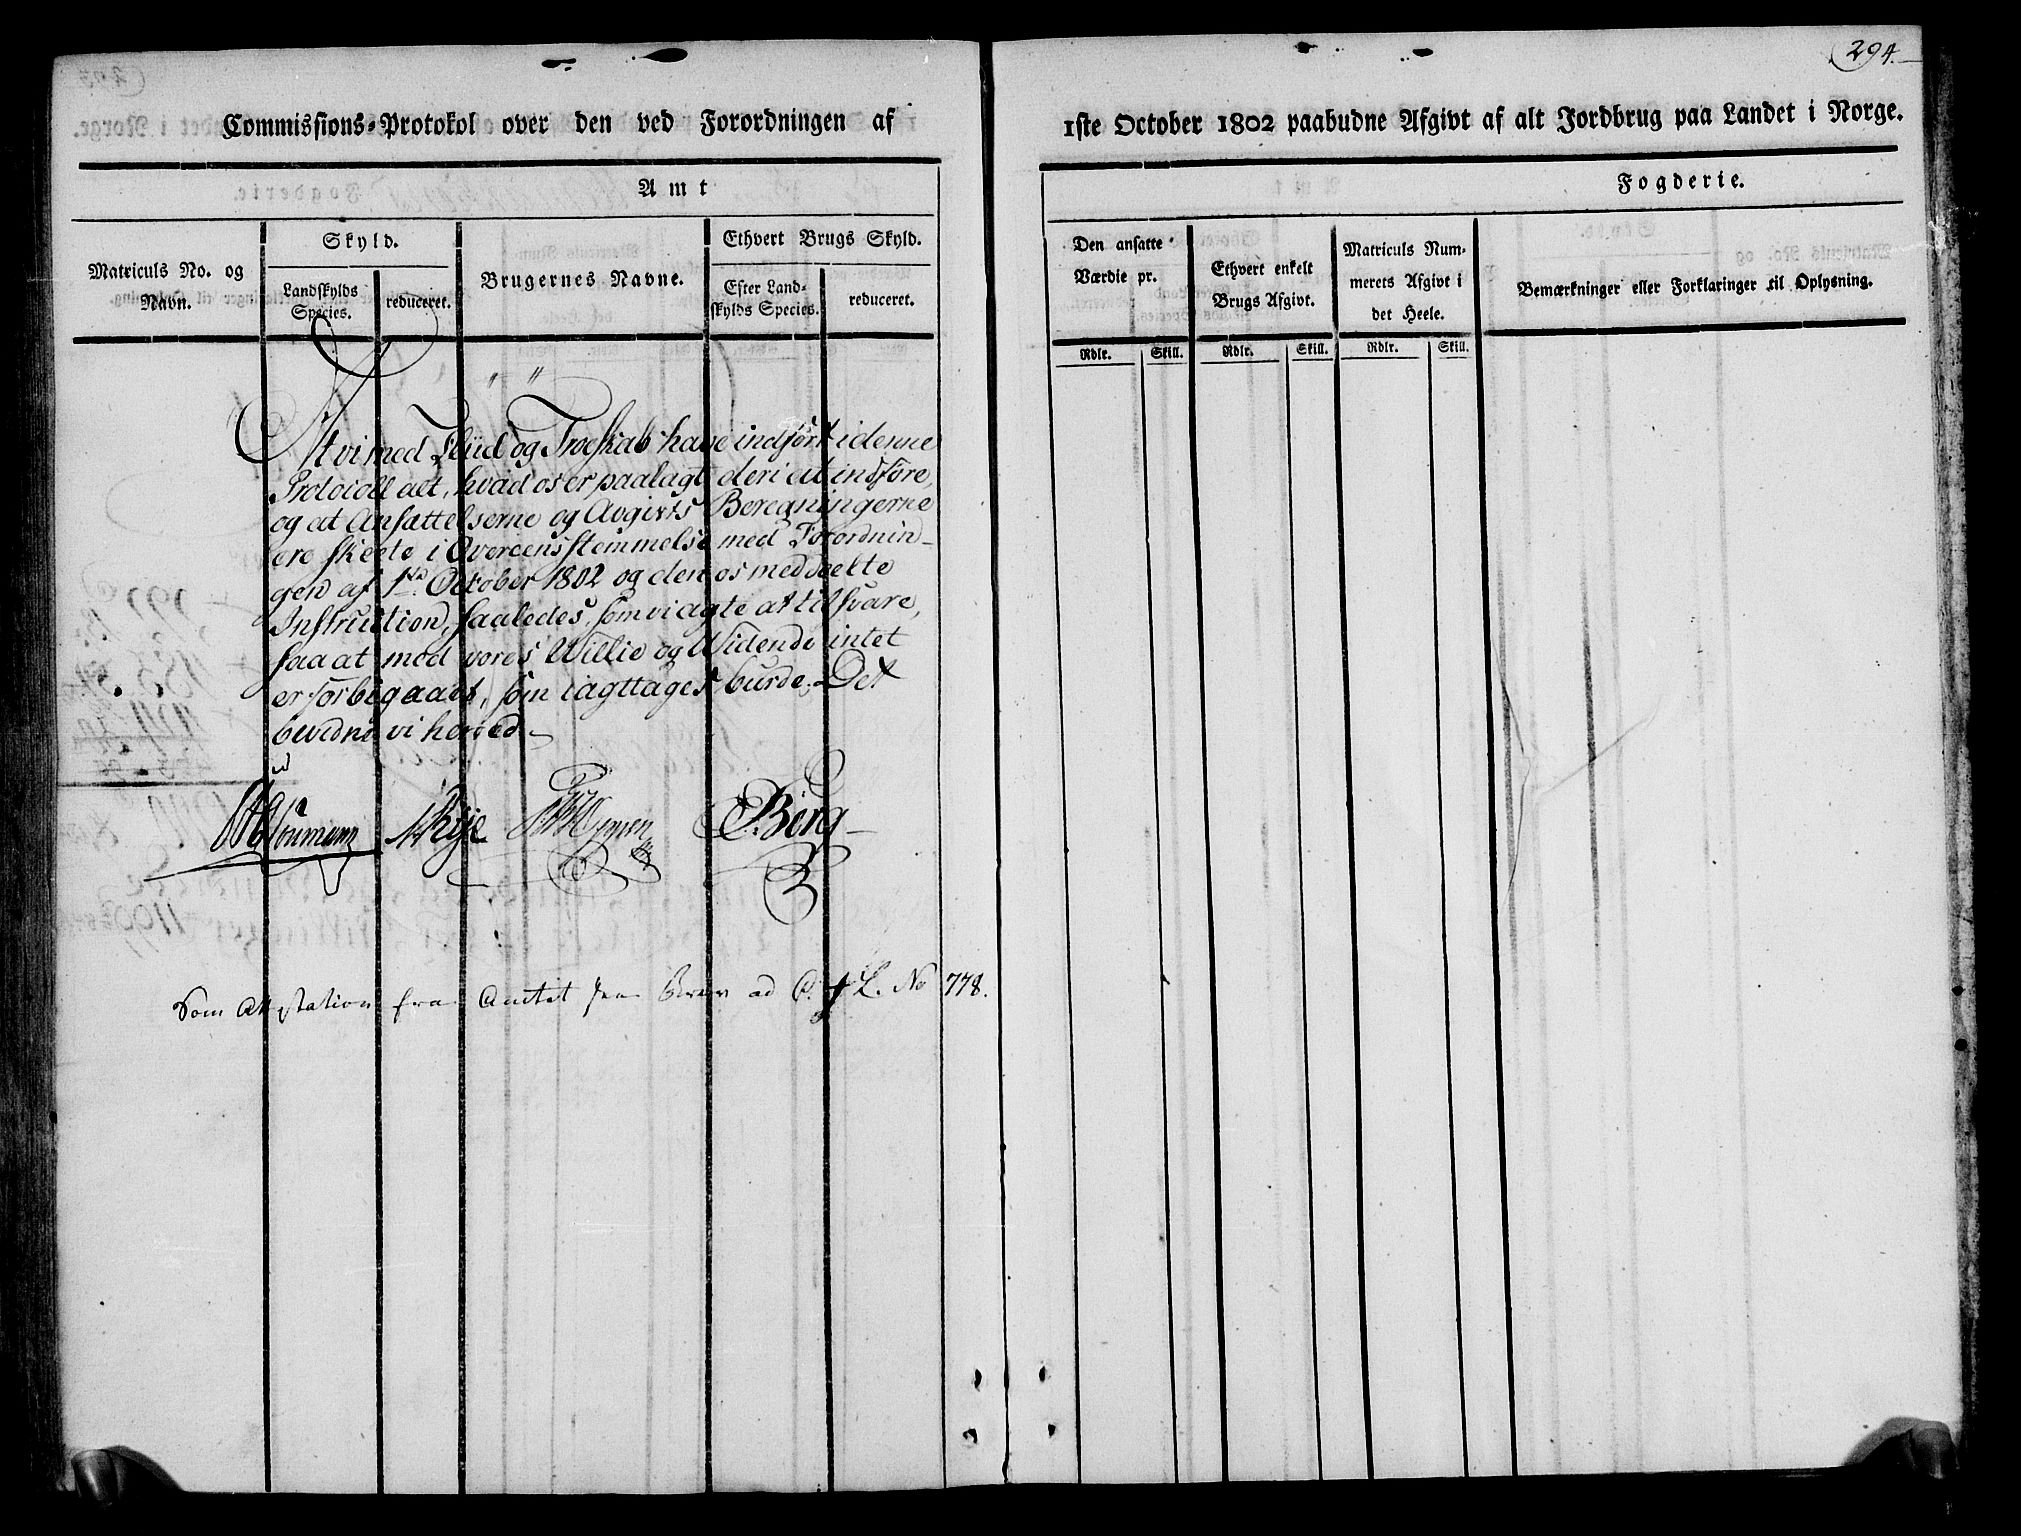 294.
Commissions-Protokol over den ved Forordningen af
1ste October 1802 paabudne Afgivt af alt Jordbrug paa Landet i Norge.
Amt
Fogderie.
Matriculs No. og
Navn.
Skyld.
Landskylds
Species.
reduceret.
Brugernes Navne.
Ethvert Brugs Skyld.
Efter Land-
skylds Species.
reduceret.
Den ansatte
Værdie pr.
Ethvert enkelt
Brugs Afgivt.
Matriculs Num-
merets Afgivt i
det Heele.
Bemærkninger eller Forklaringer til Oplysning.
Rdlr. Skill. Rdlr. Skill. Rdlr. Skill.
At vi med Fliid og Troeskab have indført i denne
Protocoll alt, hvad os er paalagt deri at indføre,
og at Ansættelserne og Avgivts Beregningerne
ere skeete i Overeensstemmelse med Forordnin-
gen af 1ste October 1802 og den os meddeelte
Instruction, saaledes, som vi agte at tilsvare,
saa at med vores Villie og Vidende intet
er forbigaaet, som iagttages burde. Det
bevidne vi herved.
Berg
Som Attestation fra Amtet paa Brev ad L. No 778.